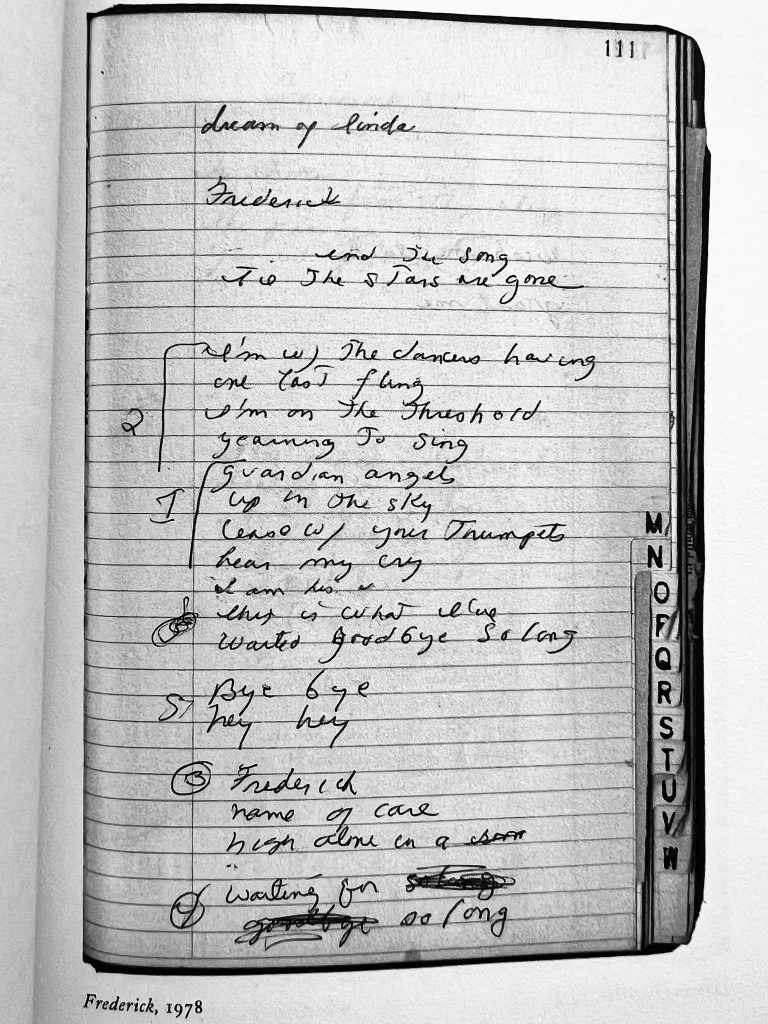 111
dream of linda
Frederick
and the song
Tie The Stars are gone
2
I'm w) The dancers having
one last fling
I'm on The Threshold
yearning To Sing
1
guardian angels
up in the sky
w/ your Trumpets
hear my cry
I am
this is what I've
waited goodbye So long
5
Bye bye
hey hey
3
Frederick
name of care
high alone in a
4
waiting for so long
goodbye so long
M
N
O
P
Q
R
S
T
U
V
W
Frederick, 1978